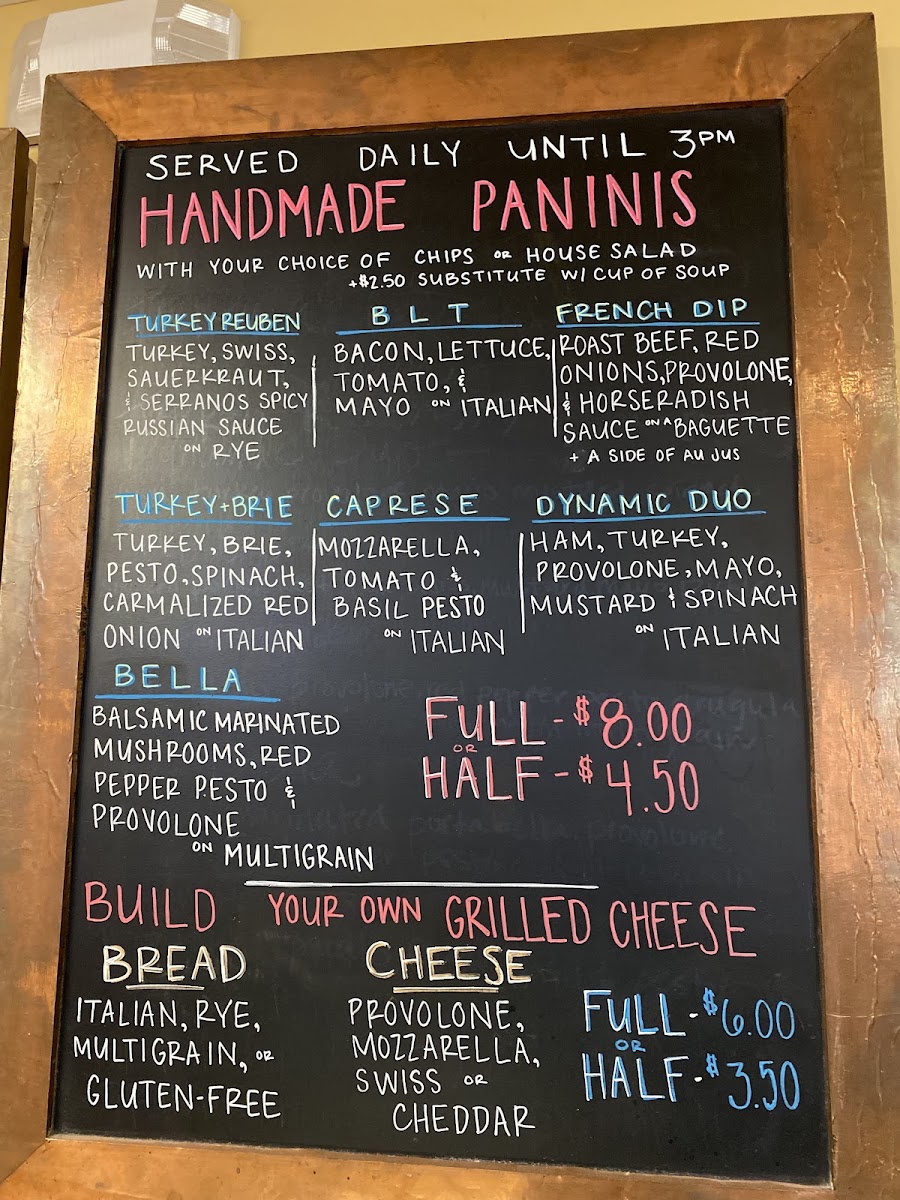 SERVED DAILY UNTIL 3PM
HANDMADE PANINIS
WITH YOUR CHOICE OF CHIPS OR HOUSE SALAD
+$2.50 SUBSTITUTE W/ CUP OF SOUP
TURKEY REUBEN
TURKEY, SWISS,
SAUERKRAUT,
& SERRANOS SPICY
RUSSIAN SAUCE
ON RYE
BLT
BACON, LETTUCE,
TOMATO, &
MAYO ON ITALIAN
FRENCH DIP
ROAST BEEF, RED
ONIONS, PROVOLONE,
& HORSERADISH
SAUCE ON A BAGUETTE
+ A SIDE OF AU JUS
TURKEY + BRIE
TURKEY, BRIE,
PESTO, SPINACH,
CARMALIZED RED
ONION ON ITALIAN
CAPRESE
MOZZARELLA,
TOMATO &
BASIL PESTO
ON ITALIAN
DYNAMIC DUO
HAM, TURKEY,
PROVOLONE, MAYO,
MUSTARD & SPINACH
ON ITALIAN
BELLA
BALSAMIC MARINATED
MUSHROOMS, RED
PEPPER PESTO &
PROVOLONE
ON MULTIGRAIN
FULL - $8.00
OR
HALF - $4.50
BUILD YOUR OWN GRILLED CHEESE
BREAD
ITALIAN, RYE,
MULTIGRAIN, OR
GLUTEN-FREE
CHEESE
PROVOLONE,
MOZZARELLA,
SWISS OR
CHEDDAR
FULL - $6.00
OR
HALF - $3.50